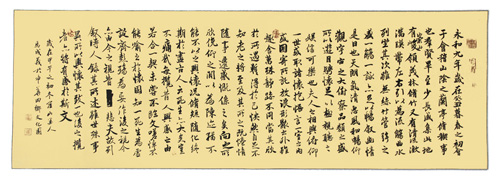 永和九年歲在癸丑暮春之初會
于會稽山陰之蘭亭脩稧事
也群賢畢至少長咸集此地
有崇山峻領茂林脩竹又有清流激
湍暎帶左右引以為流觴曲水
列坐其次雖無絲竹管弦之
盛一觴一詠亦足以暢敘幽情
是日也天朗氣清惠風和暢仰
觀宇宙之大俯察品類之盛
所以遊目騁懷足以極視聽之
娛信可樂也夫人之相與俯仰
一世或取諸懷抱悟言一室之內
或因寄所託放浪形骸之外雖
趣舍萬殊靜躁不同當其欣
於所遇暫得於己快然自足不
知老之將至及其所之既惓情
隨事遷感慨係之矣向之所
欣俛仰之閒以為陳迹猶不
能不以之興懷況脩短隨化終
期於盡古人云死生亦大矣豈
不痛哉每攬昔人興感之由
若合一契未嘗不臨文嗟悼不
能喻之於懷固知一死生為虛
誕齊彭殤為妄作後之視
今亦由今之視昔悲夫故列
敘時人錄其所述雖世殊事
異所以興懷其致一也後之攬
者亦將有感於斯文
歲在甲午之初冬